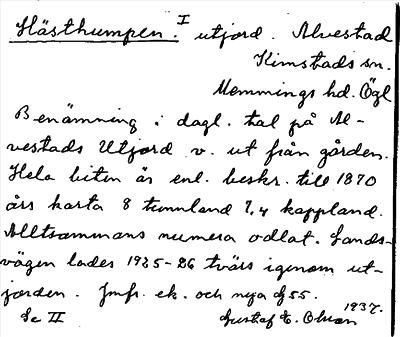 Hästhumpen. I utjord. Alvestad
Kimstads sn.
Memmings hd. Ögl
Benämning i dagl. tal på Al-
vestads Utjord v. ut från gården.
Hela biten är enl. beskr. till 1870
års karta 8 tunnland 7,4 kappland.
Alltsammans numera odlat. Lands-
vägen lades 1925-26 tvärs igenom ut-
jorden. Jmfr. ek. och nya 55.
1937.
Se II Gustaf E. Olsson